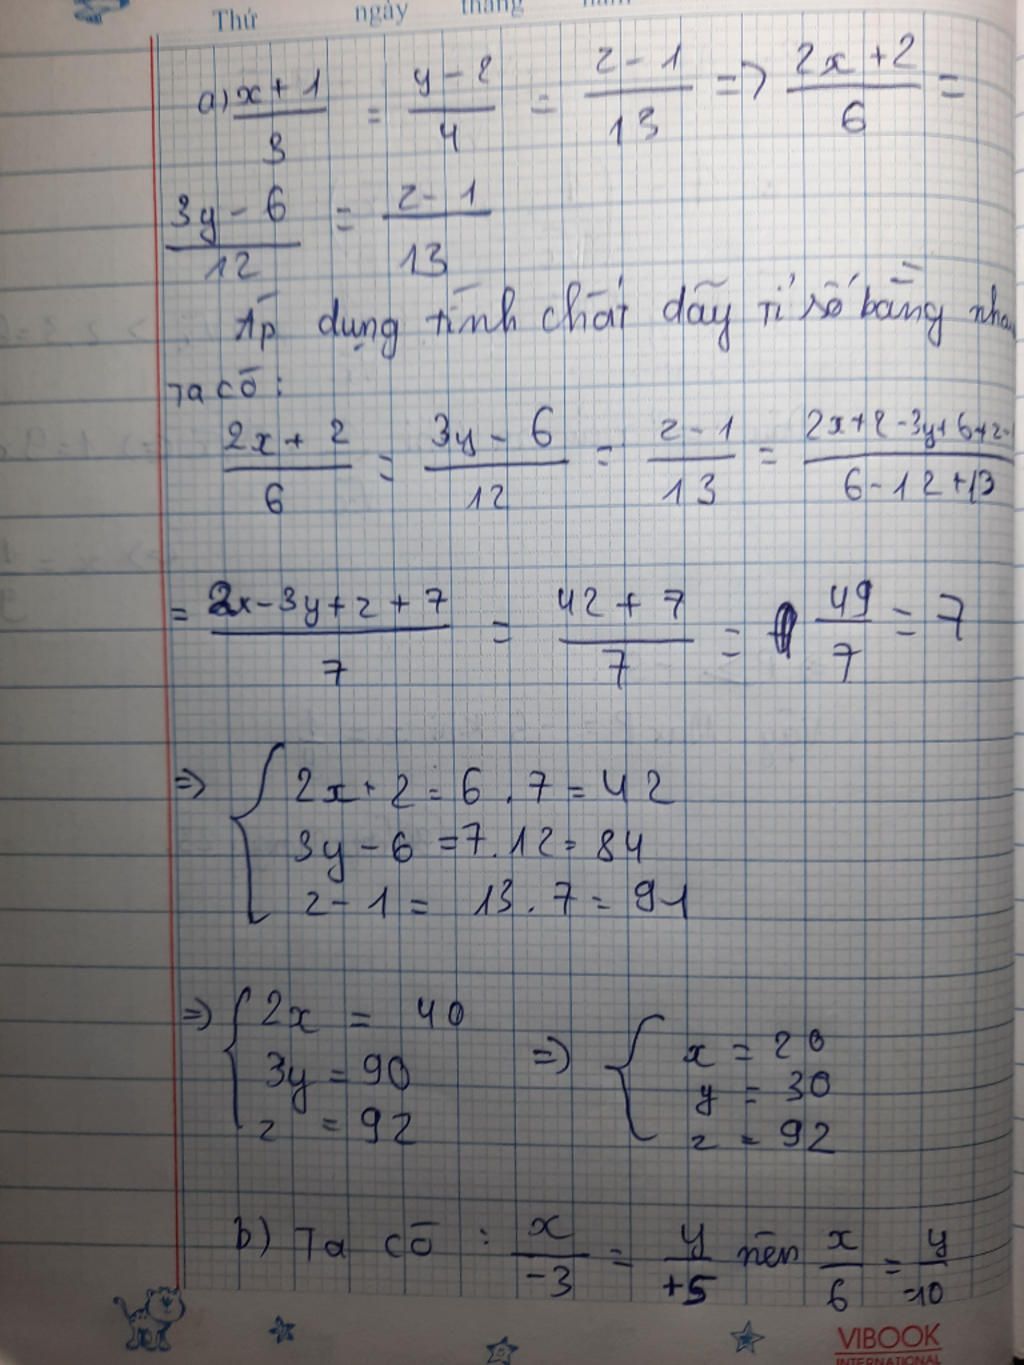 Thứ ngày tháng năm
a) x + 1 / 3 = y - 2 / 4 = z - 1 / 13 => 2x + 2 / 6 =
3y - 6 / 12 = z - 1 / 13
Áp dụng tính chất dãy tỉ số bằng nhau
Ta có :
2x + 2 / 6 = 3y - 6 / 12 = z - 1 / 13 = 2x + 2 - 3y + 6 + z - 1 / 6 - 12 + 13
= 2x - 3y + z + 7 / 7 = 42 + 7 / 7 = 49 / 7 = 7
=> { 2x + 2 = 6 . 7 = 42
3y - 6 = 7 . 12 = 84
z - 1 = 13 . 7 = 91
=> { 2x = 40 => { x = 20
3y = 90 y = 30
z = 92 z = 92
b) Ta có : x / -3 = y / +5 nên x / 6 = y / -10
VIBOOK
INTERNATIONAL